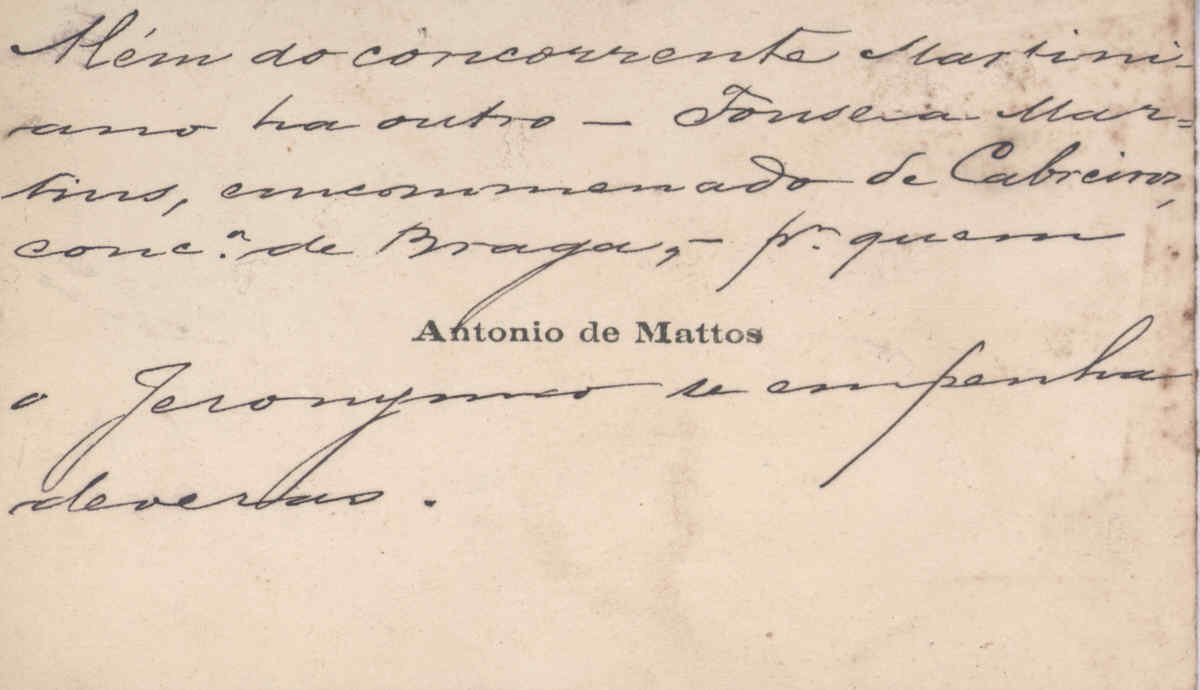 Além do concorrente Martini-
ano ha outro — Fonseca Mar=
tins, encommenado de Cabreiros,
conc.º de Braga, — pr. quem
Antonio de Mattos
o Jeronymo se empenha
deveras.